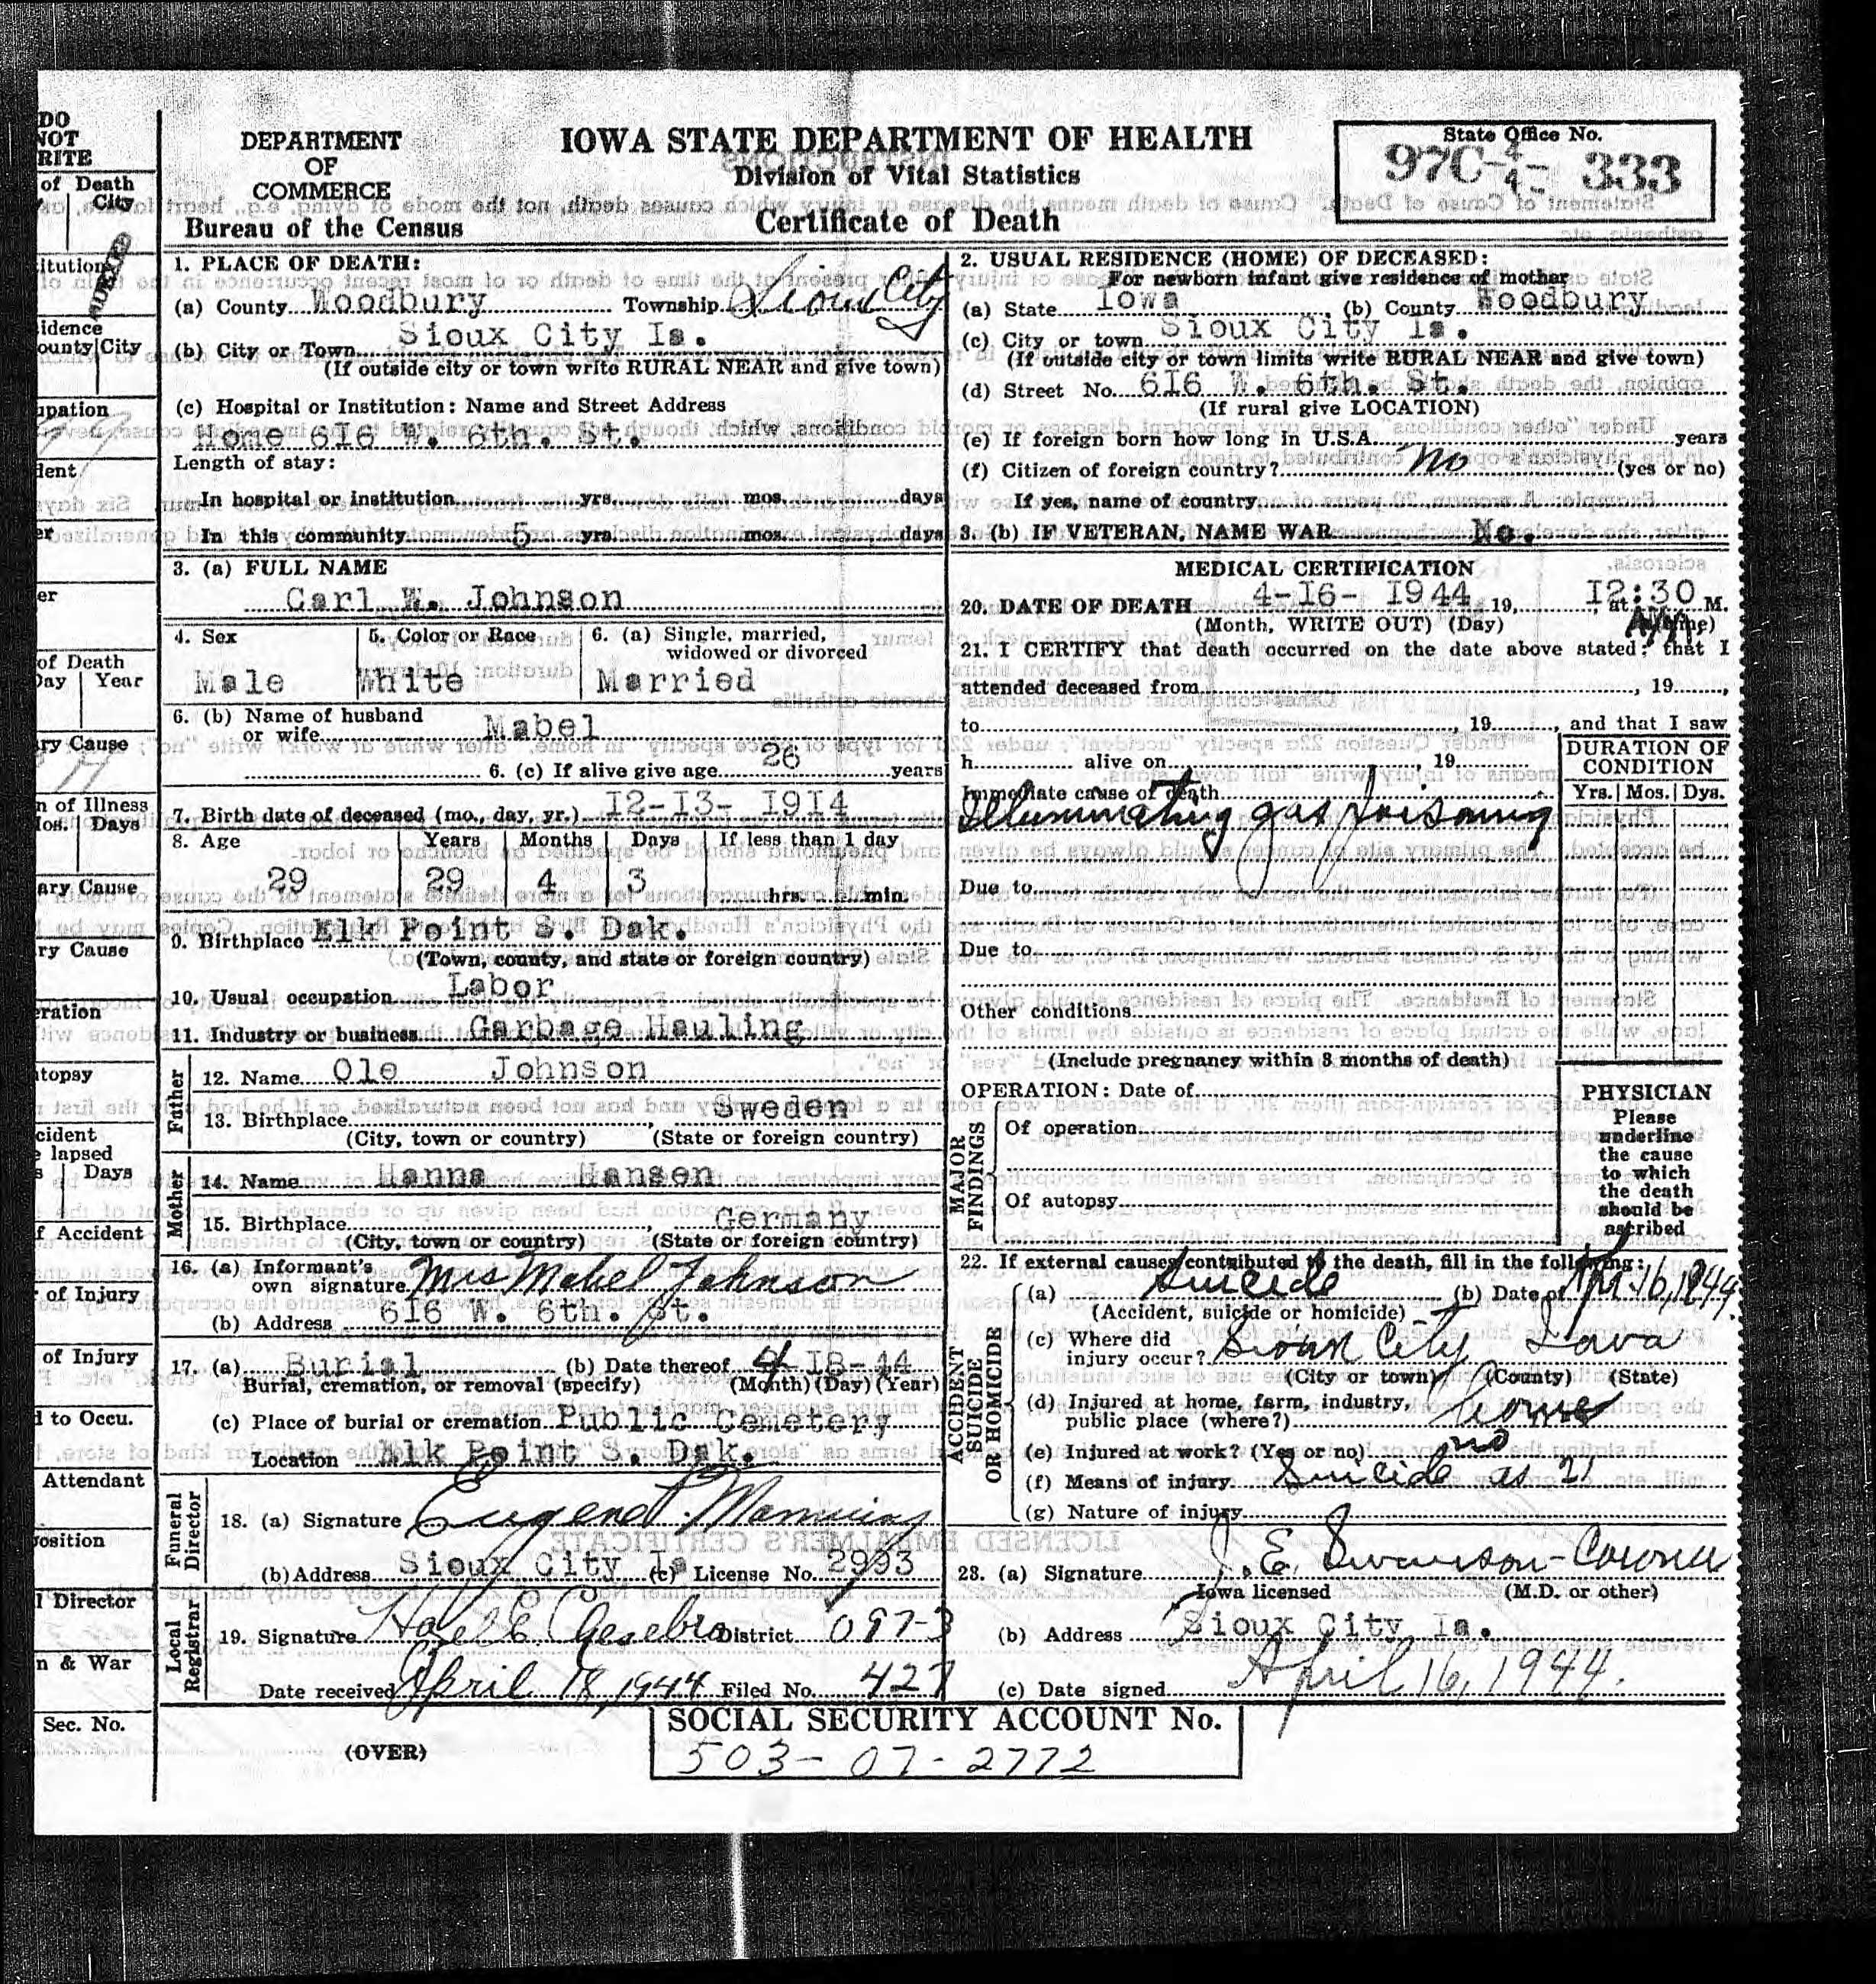 DO
NOT
RITE
of Death
City
itution
idence
ounty City
upation
dent
er
er
of Death
Day Year
ry Cause
n of Illness
Mos. Days
ary Cause
ry Cause
eration
utopsy
cident
e lapsed
s Days
f Accident
of Injury
of Injury
d to Occu.
Attendant
position
l Director
n & War
Sec. No.
DEPARTMENT
OF
COMMERCE
Bureau of the Census
IOWA STATE DEPARTMENT OF HEALTH
Division of Vital Statistics
Certificate of Death
State Office No.
97C-4/4- 333
1. PLACE OF DEATH:
(a) County Woodbury Township Sioux City
(b) City or Town Sioux City Ia.
(If outside city or town write RURAL NEAR and give town)
(c) Hospital or Institution: Name and Street Address
Home 616 W. 6th. St.
Length of stay:
In hospital or institution yrs. mos. days
In this community 5 yrs. mos. days
2. USUAL RESIDENCE (HOME) OF DECEASED:
For newborn infant give residence of mother
(a) State Iowa (b) County Woodbury
(c) City or town Sioux City Ia.
(If outside city or town limits write RURAL NEAR and give town)
(d) Street No. 616 W. 6th. St.
(If rural give LOCATION)
(e) If foreign born how long in U.S.A. years
(f) Citizen of foreign country? No (yes or no)
If yes, name of country
3. (b) IF VETERAN, NAME WAR No.
3. (a) FULL NAME
Carl W. Johnson
4. Sex 5. Color or Race 6. (a) Single, married,
widowed or divorced
Male White Married
6. (b) Name of husband
or wife Mabel
6. (c) If alive give age 26 years
7. Birth date of deceased (mo., day, yr.) 12-13- 1914
8. Age Years Months Days If less than 1 day
29 29 4 3 hrs. min.
9. Birthplace Elk Point S. Dak.
(Town, county, and state or foreign country)
10. Usual occupation Labor
11. Industry or business Garbage Hauling
Father
12. Name Ole Johnson
13. Birthplace Sweden
(City, town or country) (State or foreign country)
Mother
14. Name Hanna Hansen
15. Birthplace Germany
(City, town or country) (State or foreign country)
16. (a) Informant's
own signature Mrs Mabel Johnson
(b) Address 616 W. 6th. St.
17. (a) Burial (b) Date thereof 4-18-44
Burial, cremation, or removal (specify) (Month) (Day) (Year)
(c) Place of burial or cremation Public Cemetery
Location Alk Point S. Dak.
Funeral
Director
18. (a) Signature Eugene P. Manning
(b) Address Sioux City Ia (c) License No. 2993
Local
Registrar
19. Signature Hazel E. District 097-3
Date received April 18, 1944 Filed No. 427
MEDICAL CERTIFICATION
20. DATE OF DEATH 4-16- 1944 19, at 12:30 M.
(Month, WRITE OUT) (Day) A.M. (time)
21. I CERTIFY that death occurred on the date above stated; that I
attended deceased from , 19 ,
to , 19 , and that I saw
h alive on , 19
DURATION OF
CONDITION
Yrs. Mos. Dys.
Immediate cause of death
Illuminating gas poisoning
Due to
Due to
Other conditions
(Include pregnancy within 3 months of death)
OPERATION: Date of
MAJOR
FINDINGS
Of operation
Of autopsy
PHYSICIAN
Please
underline
the cause
to which
the death
should be
ascribed
22. If external causes contributed to the death, fill in the following:
ACCIDENT
SUICIDE
OR HOMICIDE
(a) Suicide (b) Date of Apr. 16, 1944.
(Accident, suicide or homicide)
(c) Where did
injury occur? Sioux City Iowa
(City or town) (County) (State)
(d) Injured at home, farm, industry,
public place (where?) home
(e) Injured at work? (Yes or no) no
(f) Means of injury Suicide as 21
(g) Nature of injury
23. (a) Signature J. E. Swanson - Coroner
Iowa licensed (M.D. or other)
(b) Address Sioux City Ia.
(c) Date signed April 16, 1944.
(OVER)
SOCIAL SECURITY ACCOUNT No.
503-07-2772